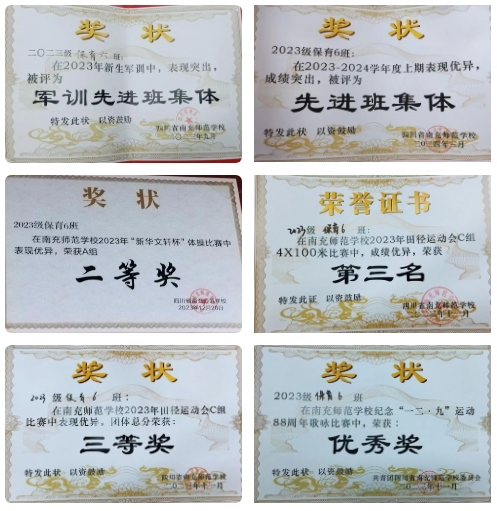 奖 状
二〇二三级 保育六 班：
在2023年新生军训中，表现突出，
被评为
军训先进班集体
特发此状 以资鼓励
四川省南充师范学校
二〇二三年九月
奖 状
2023级保育6班：
在2023-2024学年度上期表现优异，
成绩突出，被评为
先进班集体
特发此状 以资鼓励
四川省南充师范学校
二〇二四年三月
奖 状
2023级保育6班
在南充师范学校2023年“新华文轩杯”体操比赛中
表现优异，荣获A组
二等奖
四川省南充师范学校
2023年12月26日
荣誉证书
2023级 保育6 班：
在南充师范学校2023年田径运动会C组
4X100米比赛中，成绩优异，荣获
第三名
特发此证 以资鼓励
四川省南充师范学校
二〇二三年十一月
奖 状
2023 级 保育6 班：
在南充师范学校2023年田径运动会C组
比赛中表现优异，团体总分荣获：
三等奖
特发此状 以资鼓励
四川省南充师范学校
二〇二三年十一月
奖 状
2023级 保育6 班：
在南充师范学校纪念“一二·九”运动
88周年歌咏比赛中，荣获：
优秀奖
特发此状 以资鼓励
共青团四川省南充师范学校委员会